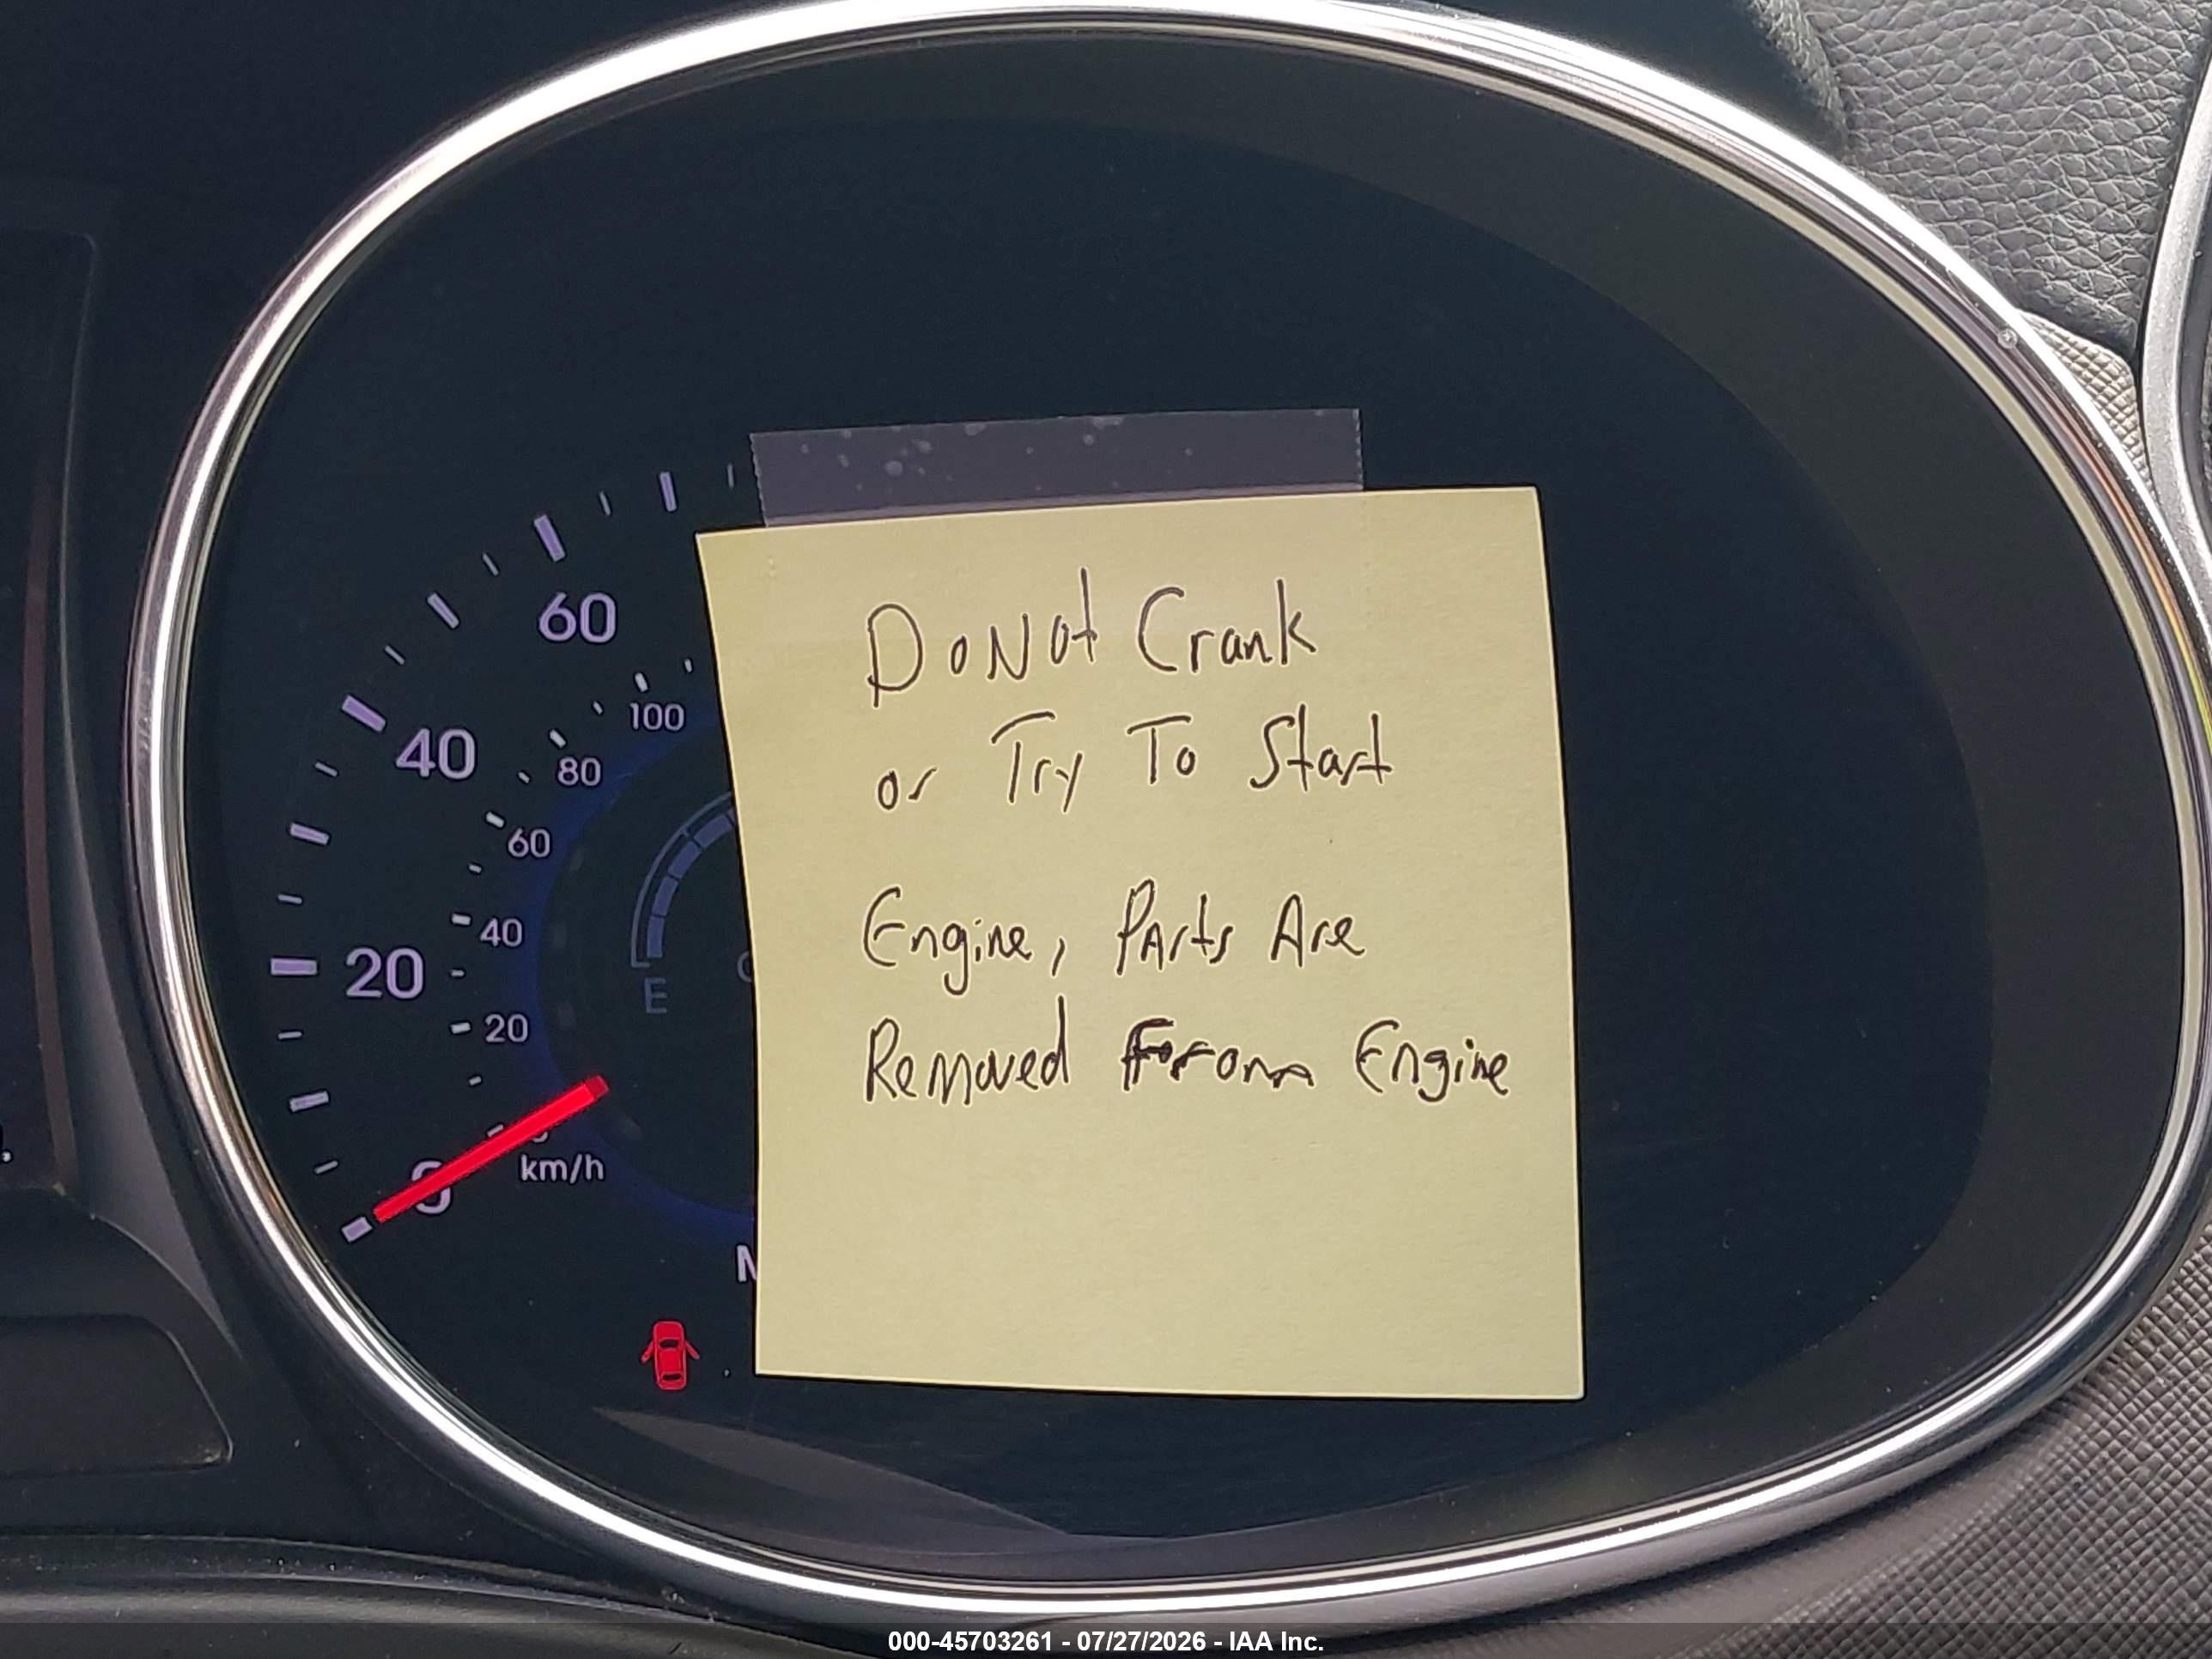 60
40
100
80
60
40
20
20
E
km/h
0
M
DoNot Crank
or Try To Start
Engine, PArts Are
Removed From Engine
000-45703261 - 07/27/2026 - IAA Inc.